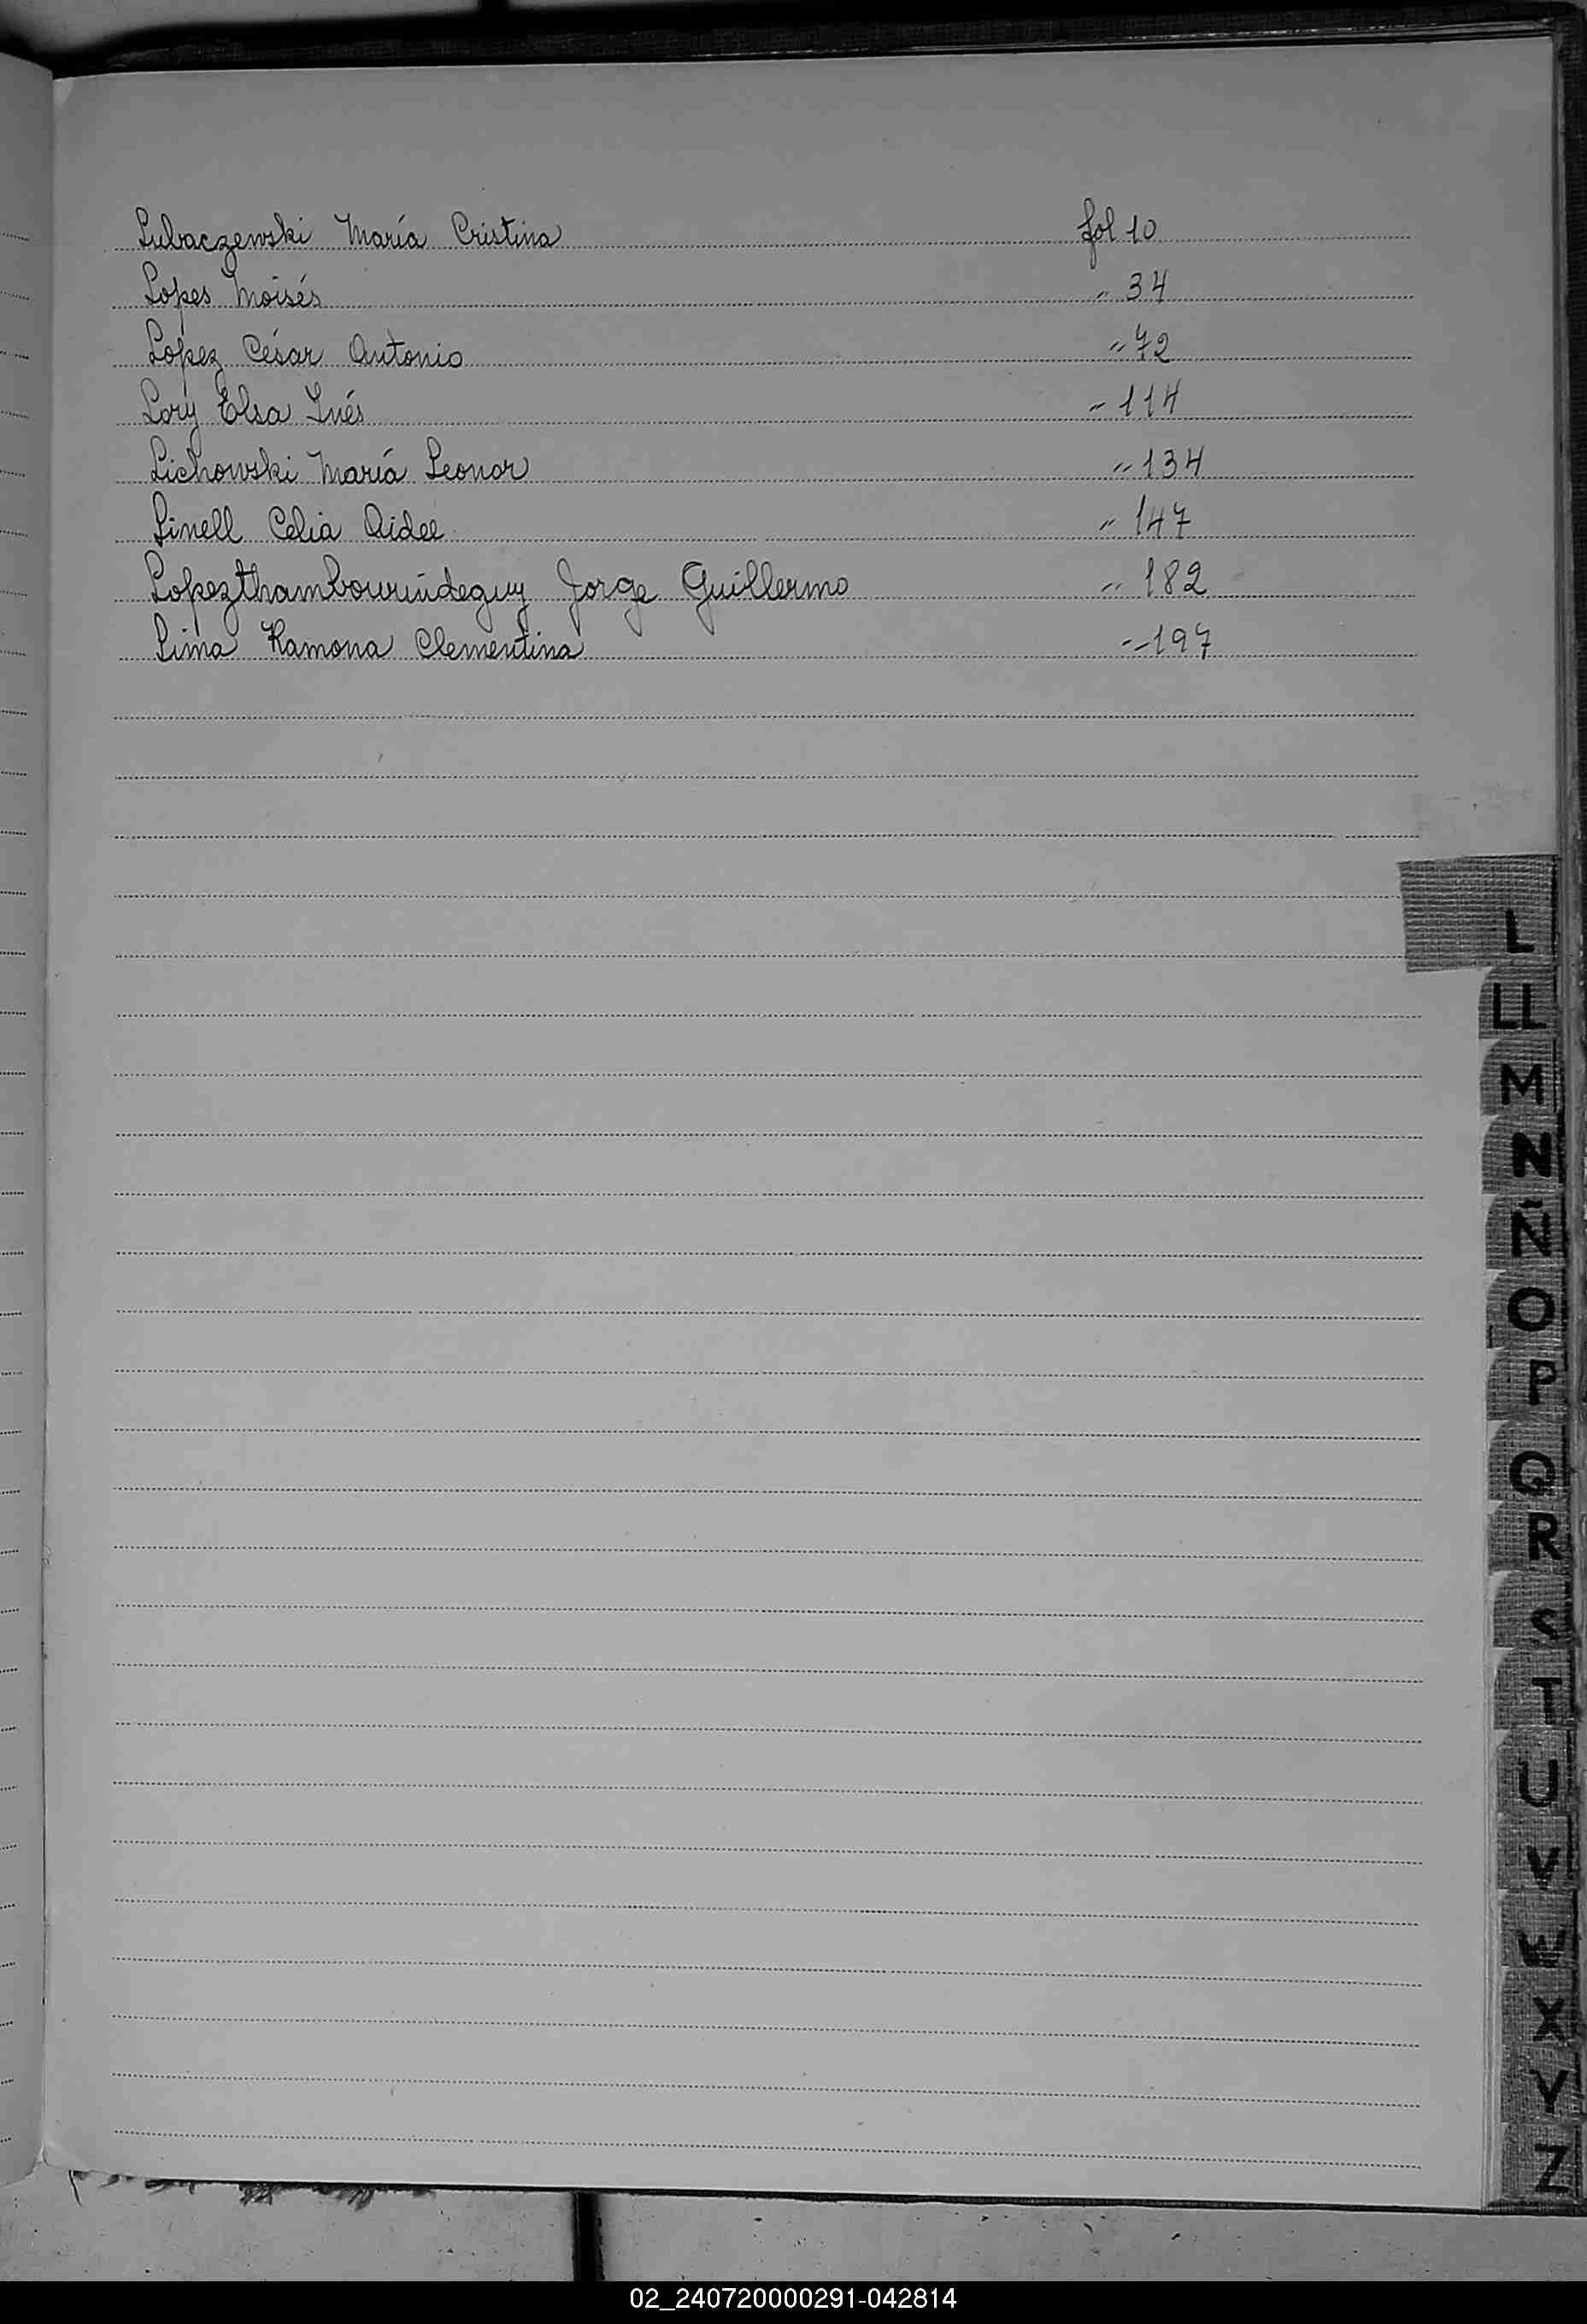 Lubaczewski María Cristina fol 10
Lopes Moisés " 34
Lopez César Antonio " 72
Lory Elsa Inés " 114
Lichowski María Leonor " 134
Linell Celia Aidee " 147
Lopezthambourindeguy Jorge Guillermo " 182
Lima Ramona Clementina " 197
L
LL
M
N
Ñ
O
P
Q
R
S
T
U
V
W
X
Y
Z
02_240720000291-042814